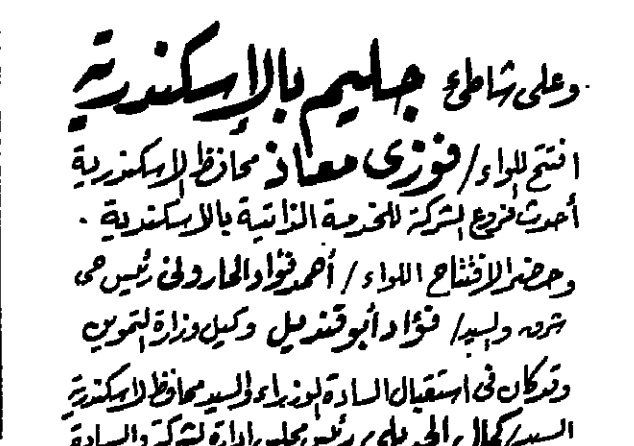 وعلى شاطئ جليم بالإسكندرية
افتتح اللواء/ فوزى معاذ محافظ الإسكندرية
أحدث فروع الشركة للخدمة الذاتية بالأسكندرية .
وحضر الافتتاح اللواء / أحمد فؤاد الحارونى رئيس حى
شرق والسيد/ فؤاد أبو قنديل وكيل وزارة التموين
وقد كان فى استقبال السادة الوزراء والسيد محافظ الاسكندرية
السيد/ كمال رئيس مجلس إدارة الشركة والسادة